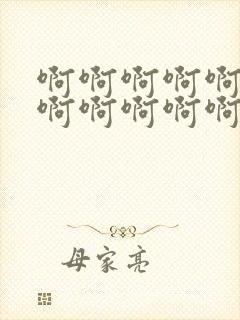 啊啊啊啊啊
啊啊啊啊啊
母家亮